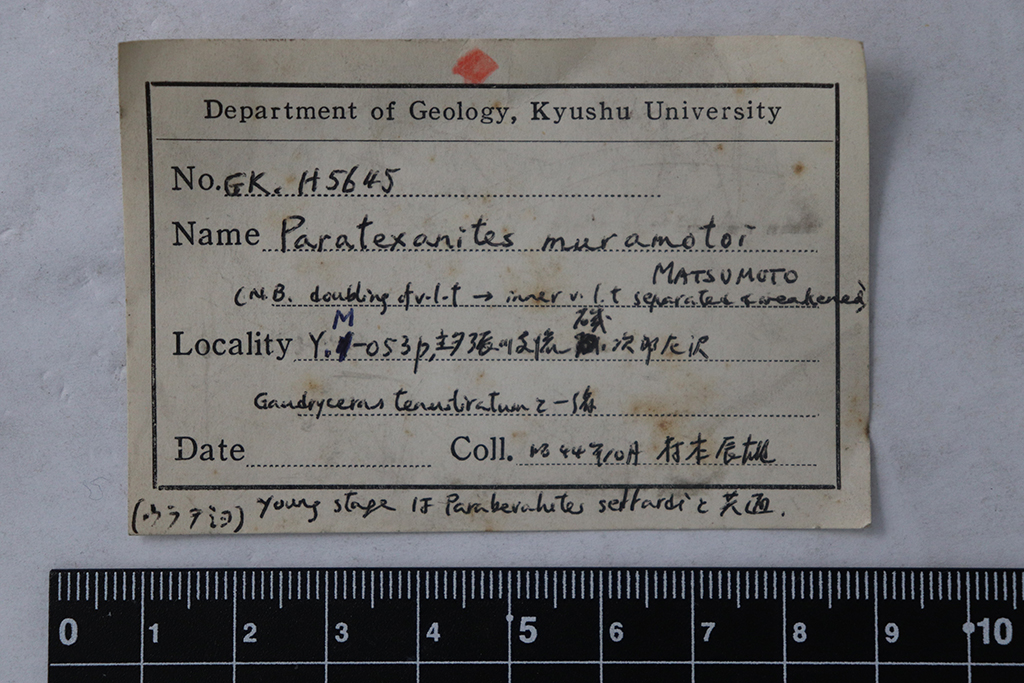 Department of Geology, Kyushu University
No. GK. H5645
Name Paratexanites muramotoi
MATSUMOTO
(N.B. doubling of v.l.t → inner v.l.t separated & weakened)
M
Locality Y. -053p, 次郎左沢
Gaudryceras tenuiliratum と一緒
Date Coll. 昭44年10月 村本辰雄
(ウラテミヨ) young stage は と共通.
0 1 2 3 4 5 6 7 8 9 10